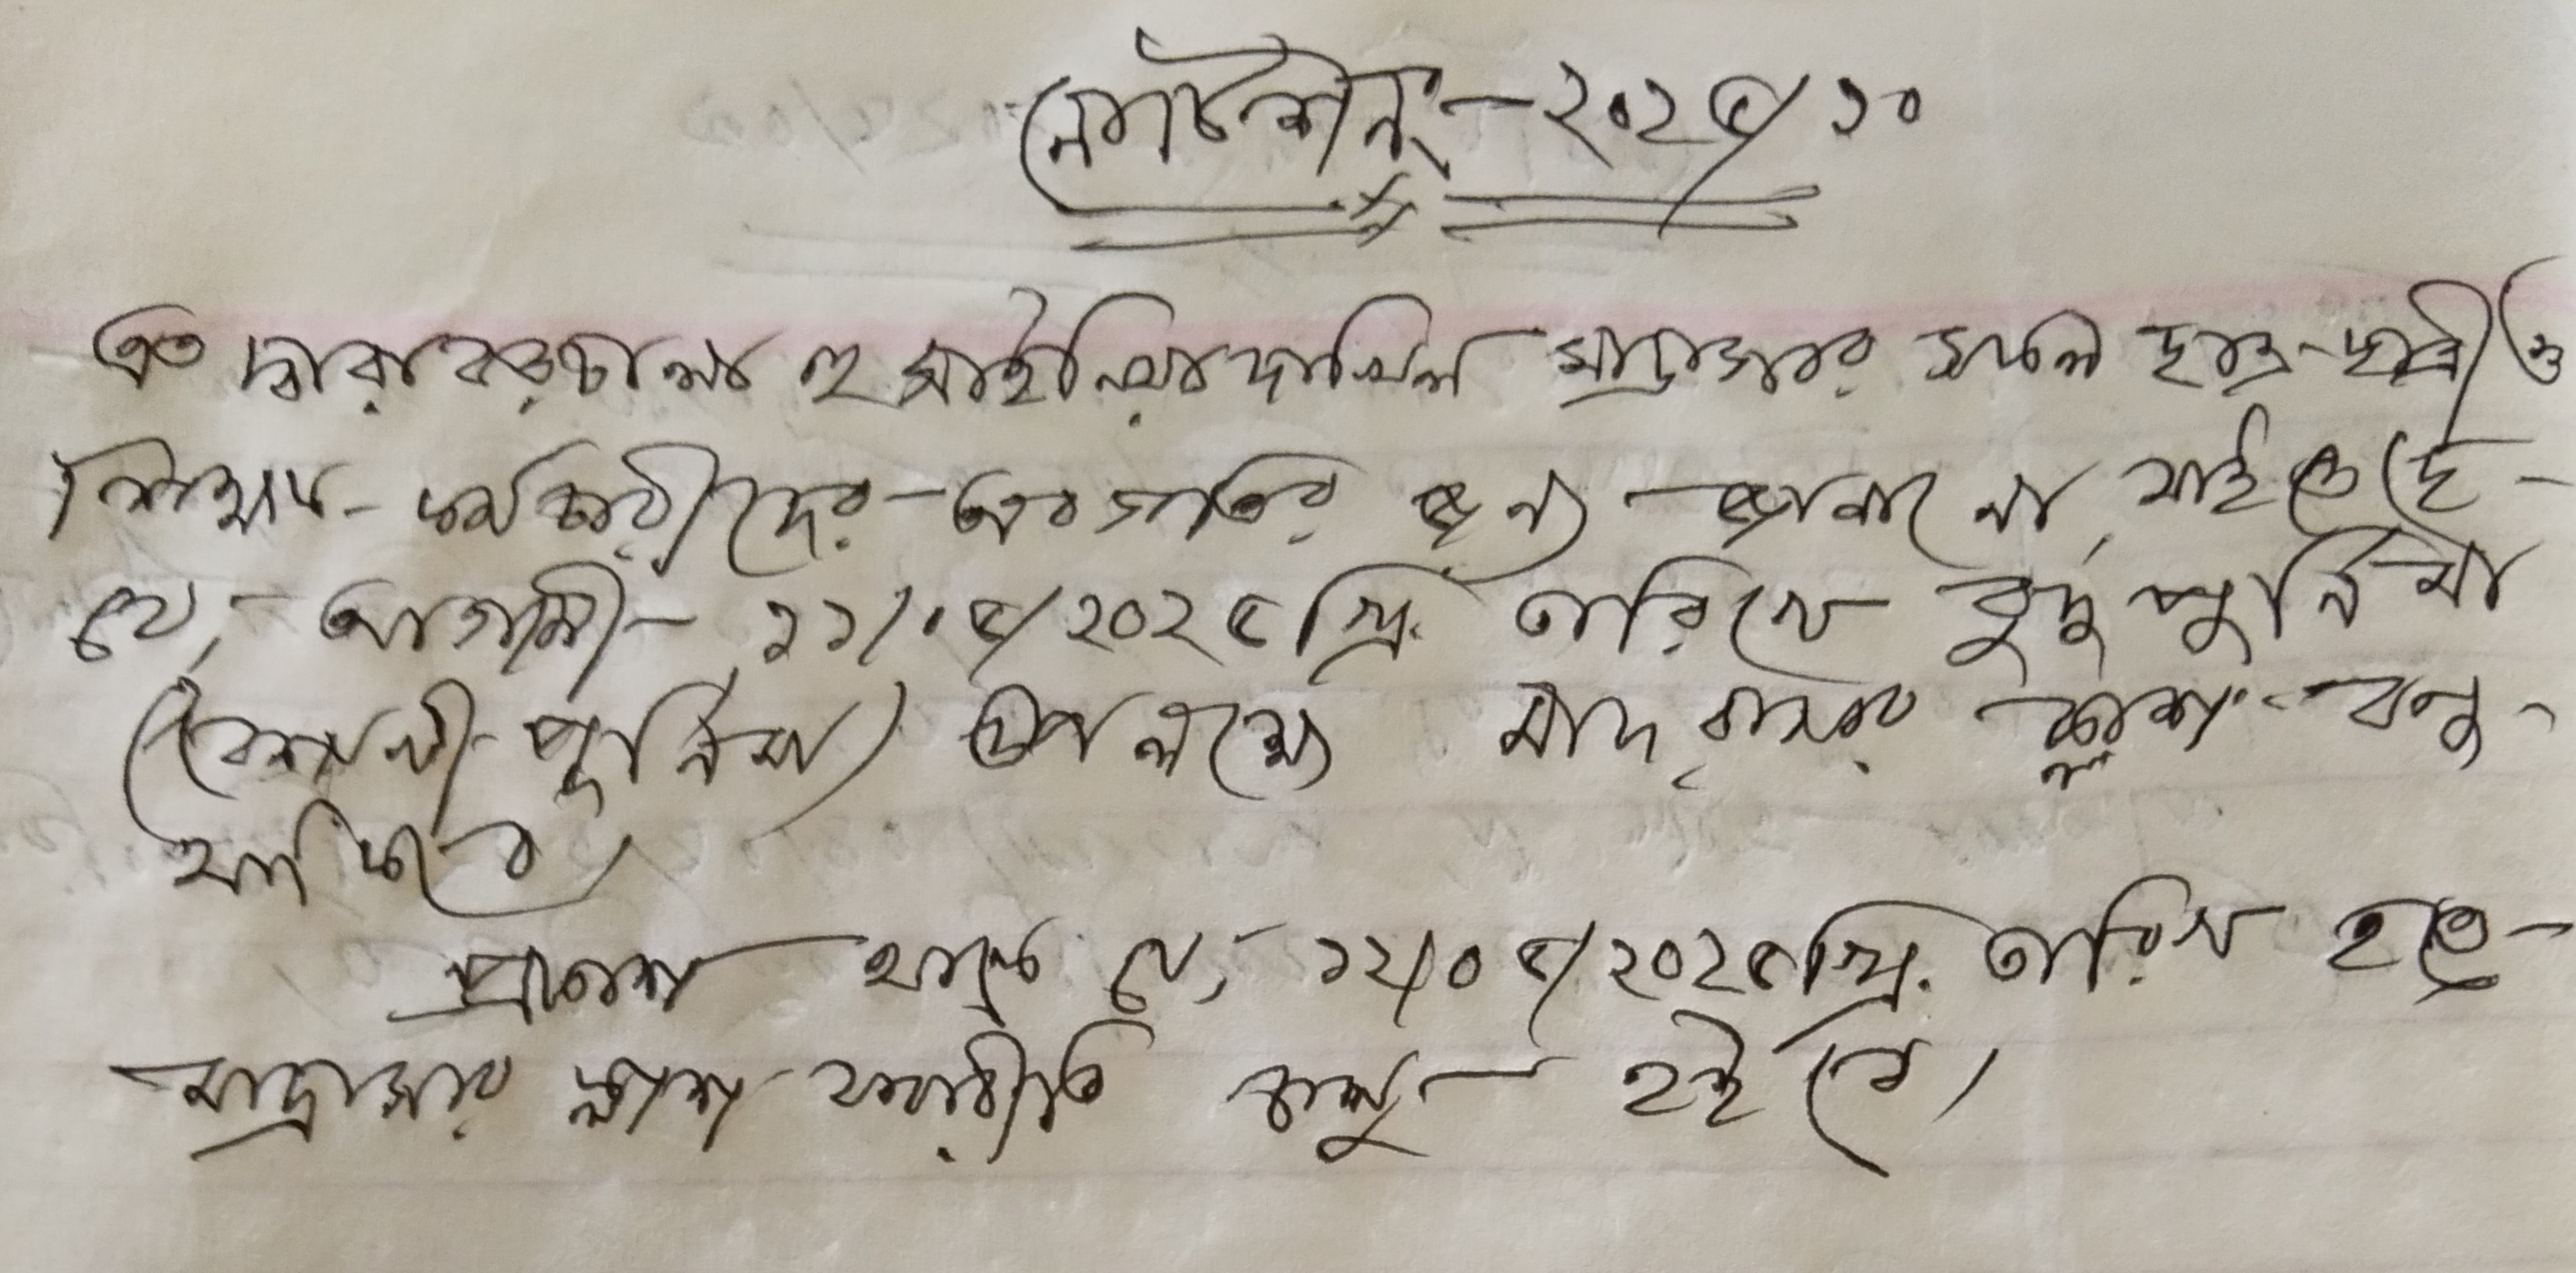 নোটিশ নং-২০২৫/১০
এত দ্বারা বরতালা হুসাইনিয়া দাখিল মাদ্রাসার সকল ছাত্র-ছাত্রী ও
শিক্ষক-কর্মচারীদের-অবগতির জন্য-জানানো যাইতেছে-
যে,-আগামী-১১/০৫/২০২৫ খ্রি. তারিখে বুদ্ধ পুর্নিমা
(বৈশাখী পুর্নিমা) উপলক্ষ্যে মাদ্রাসার ক্লাশ-বন্ধ-
থাকিবে।
প্রকাশ থাকে যে, ১২/০৫/২০২৫ খ্রি. তারিখ হতে-
মাদ্রাসার ক্লাশ যথারীতি চালু হইবে।